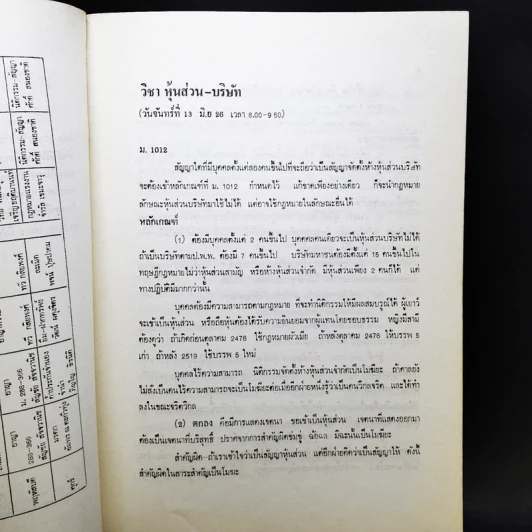 วิชา หุ้นส่วน-บริษัท
(วันจันทร์ที่ 13 มิ.ย 26 เวลา 8.00-9 50)
ม. 1012
สัญญาใดที่มีบุคคลตั้งแต่สองคนขึ้นไปที่จะถือว่าเป็นสัญญาจัดตั้งห้างหุ้นส่วนบริษัท
จะต้องเข้าหลักเกณฑ์ที่ ม. 1012 กำหนดไว้ แก้ขาดเพียงอย่างเดียว ก็จะนำกฎหมาย
ลักษณะหุ้นส่วนบริษัทมาใช้ไม่ได้ แต่อาจใช้กฎหมายในลักษณะอื่นได้
หลักเกณฑ์
(1) ต้องมีบุคคลตั้งแต่ 2 คนขึ้นไป บุคคลคนเดียวจะเป็นหุ้นส่วนบริษัทไม่ได้
ถ้าเป็นบริษัทตามป.พ.พ. ต้องมี 7 คนขึ้นไป บริษัทมหาชนต้องมีตั้งแต่ 15 คนขึ้นไปใน
ทฤษฎีกฎหมายไม่ว่าหุ้นส่วนสามัญ หรือห้างหุ้นส่วนจำกัด มีหุ้นส่วนเพียง 2 คนก็ได้ แต่
ทางปฏิบัติมีมากกว่านั้น
บุคคลต้องมีความสามารถตามกฎหมาย ที่จะทำนิติกรรมให้มีผลสมบูรณ์ได้ ผู้เยาว์
จะเข้าเป็นหุ้นส่วน หรือถือหุ้นต้องได้รับความยินยอมจากผู้แทนโดยชอบธรรม หญิงมีสามี
ต้องดูว่า ถ้าเกิดก่อนตุลาคม 2478 ใช้กฎหมายผัวเมีย ถ้าหลังตุลาคม 2478 ให้บรรพ 5
เก่า ถ้าหลัง 2519 ใช้บรรพ 5 ใหม่
บุคคลไร้ความสามารถ นิติกรรมจัดตั้งห้างหุ้นส่วนจำกัดเป็นโมฆียะ ถ้าศาลยัง
ไม่สั่งเป็นคนไร้ความสามารถจะเป็นโมฆียะต่อเมื่ออีกฝ่ายหนึ่งรู้ว่าเป็นคนวิกลจริต และได้ทำ
ลงในขณะจริตวิกล
(2) ตกลง คือมีการแสดงเจตนา ขอเข้าเป็นหุ้นส่วน เจตนาที่แสดงออกมา
ต้องเป็นเจตนาที่บริสุทธิ์ ปราศจากการสำคัญผิดข่มขู่ ฉ้อฉล มิฉะนั้นเป็นโมฆะ
สำคัญผิด ถ้าเราเข้าใจว่าเป็นสัญญาหุ้นส่วน แต่อีกฝ่ายคิดว่าเป็นสัญญาให้ ดังนี้
สำคัญผิดในสาระสำคัญเป็นโมฆะ